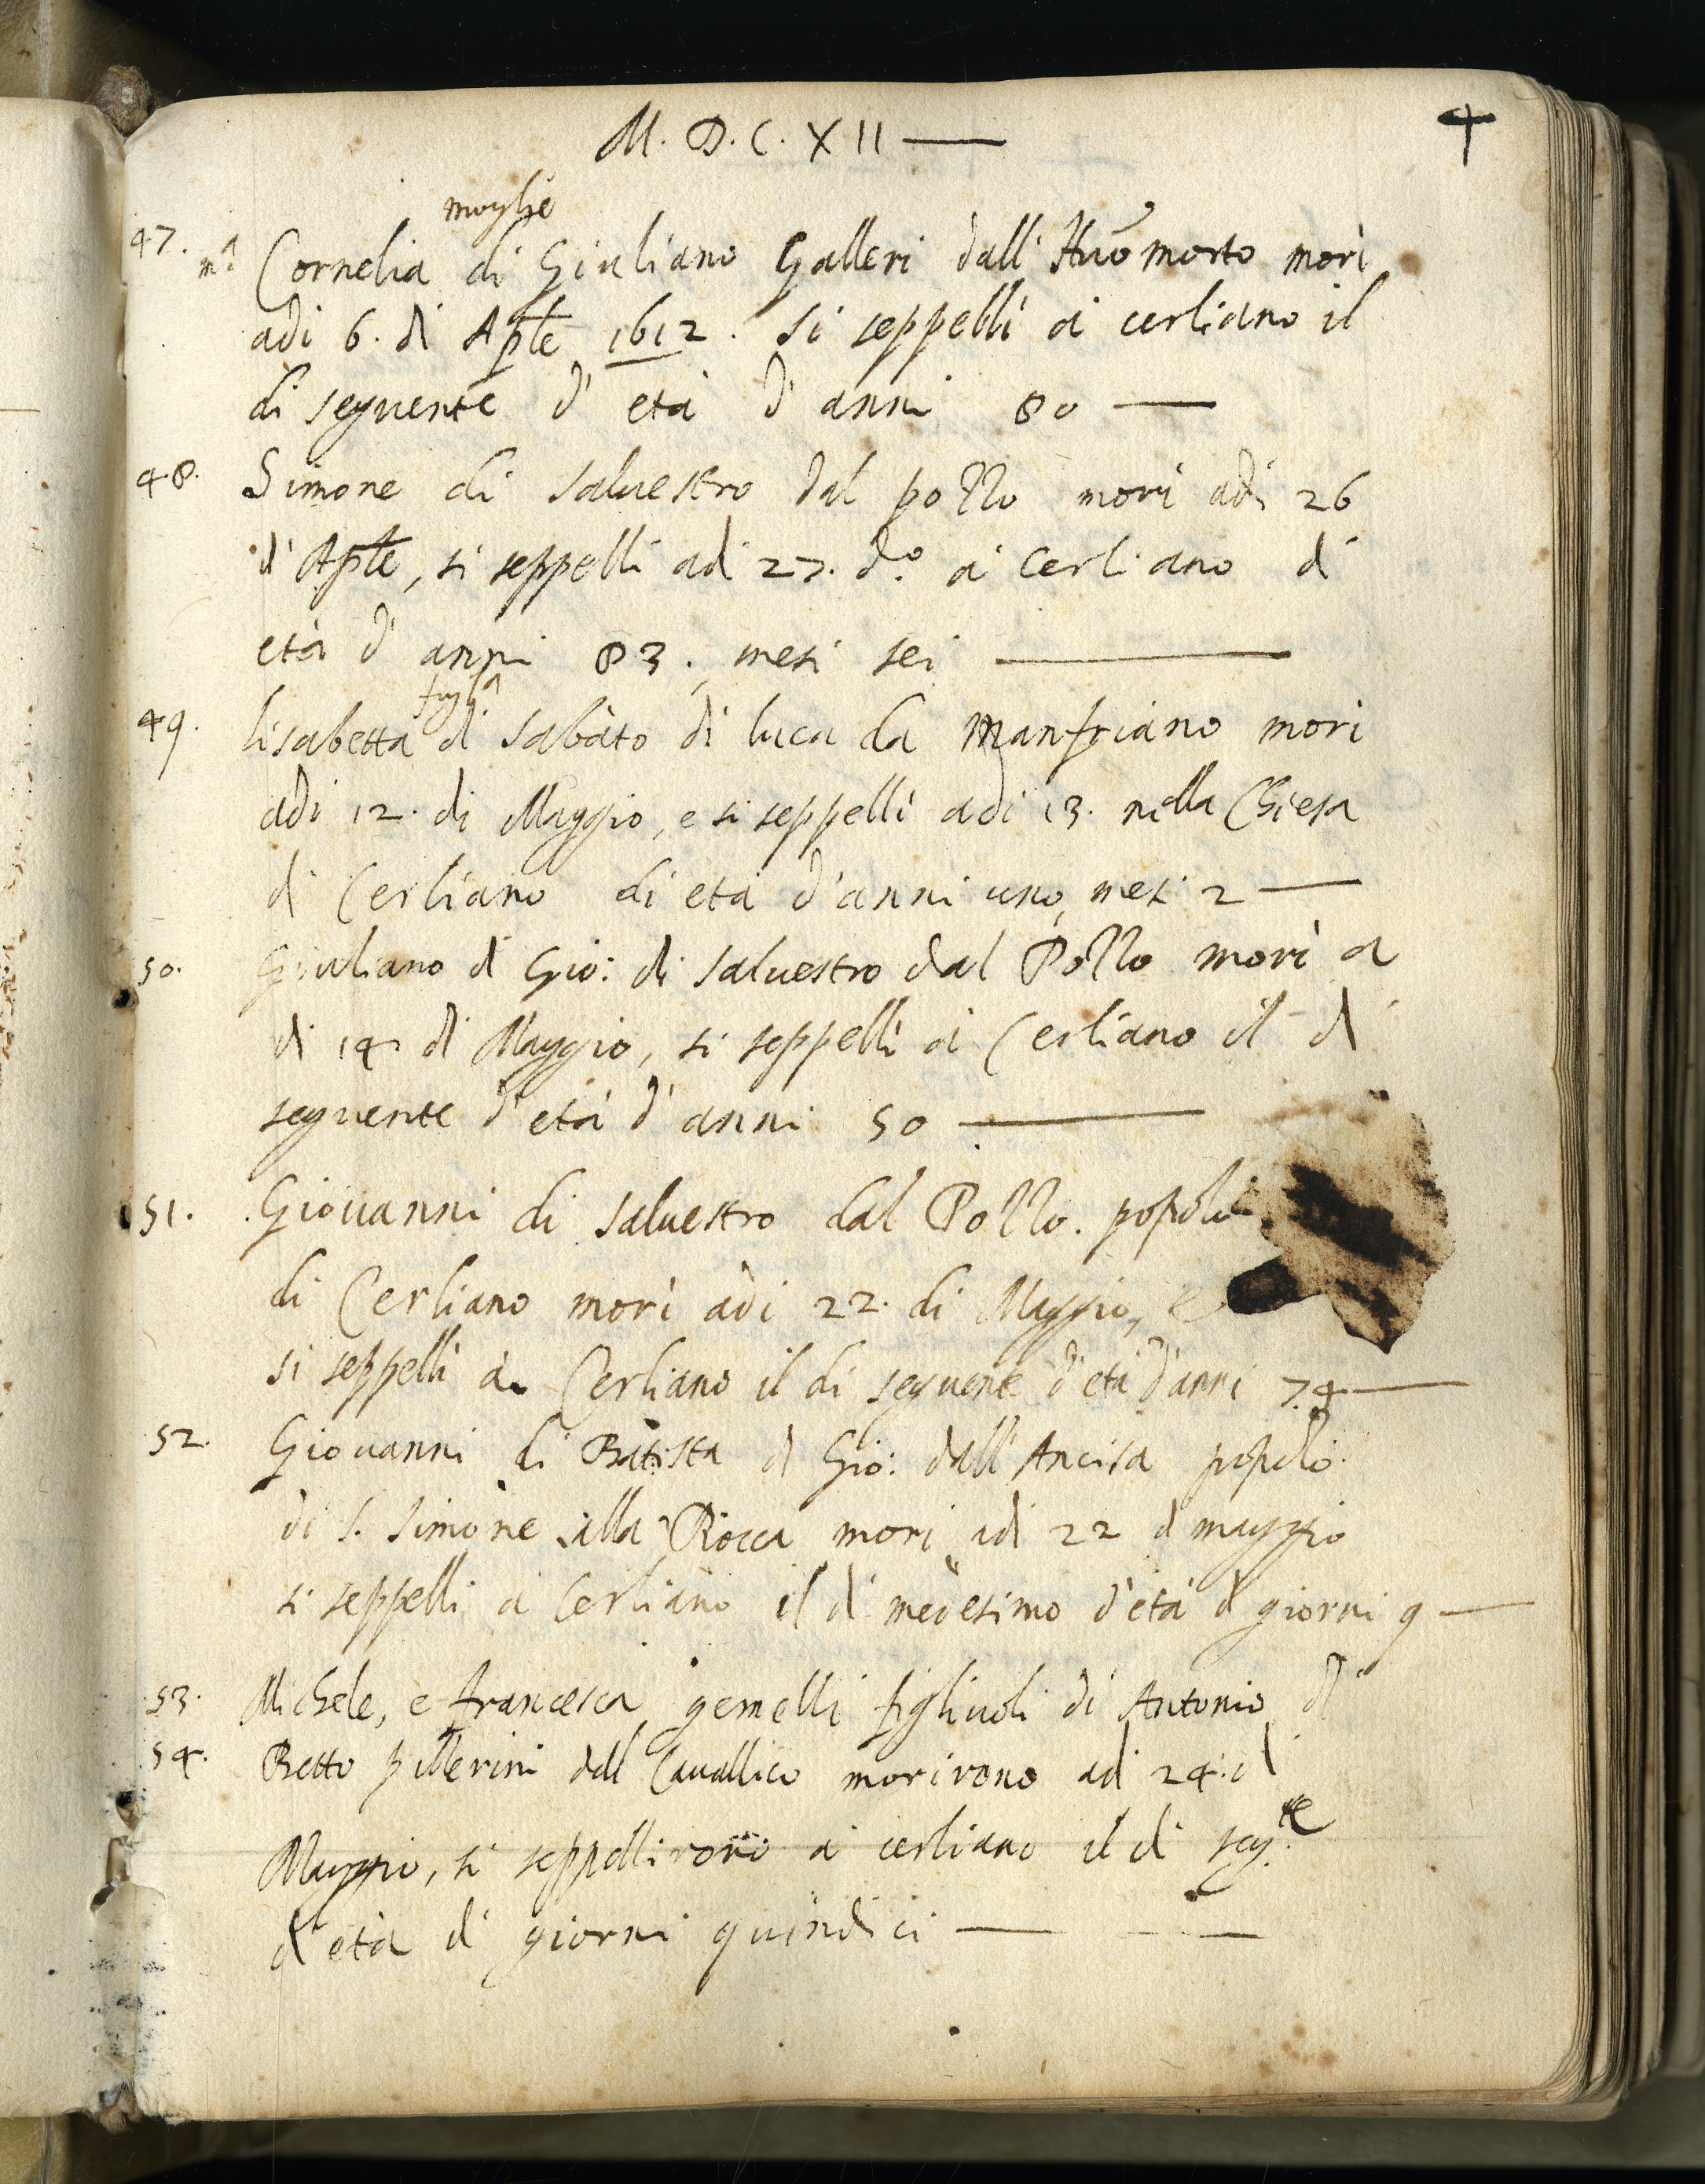 M. D. C. XII
4
moglie
47. mª Cornelia di Giuliano Galleri dall' Huō morto morì
adi 6. di Aple 1612. si seppellì a cerliano il
di seguente d' età d' anni 80
48. Simone di Salvestro dal pozzo morì adi 26
d' Aple, si seppelli adi 27. do. a Cerliano di
età d' anni 83. mesi sei
figlᵃ
49. lisabetta di Sabato di luca da Manfriano mori
adi 12. di Maggio, e si seppellì adi 13. nella Chiesa
di Cerliano di età d'anni uno, mesi 2
50. Giuliano di Gio: di Salvestro dal Pozzo morì a
di 14 di Maggio, si seppellì a Cerliano il di
seguente d' età d' anni 50
51. Giovanni di Salvestro dal Pozzo. popolo
di Cerliano morì adi 22. di Maggio, e
si seppellì a Cerliano il di seguente d' età d' anni 74
52. Giovanni di Batista di Gio: dall' Ancisa popolo
di S. Simone alla Rocca mori adi 22 di maggio
si seppelli a Cerliano il di medesimo d' età di giorni 9
53. Michele, e francesca gemelli figliuoli di Antonio di
54. Betto dal Cavallico morirono adi 24. di
Maggio, si seppellirono a cerliano il di segᵗᵉ
d' età di giorni quindici